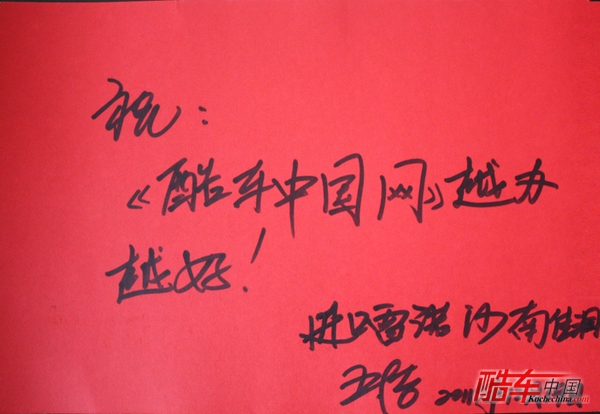 祝：
《酷车中国网》越办
越好！
进口雷诺沙南佳润
2011
酷车中国
Kuchechina.com